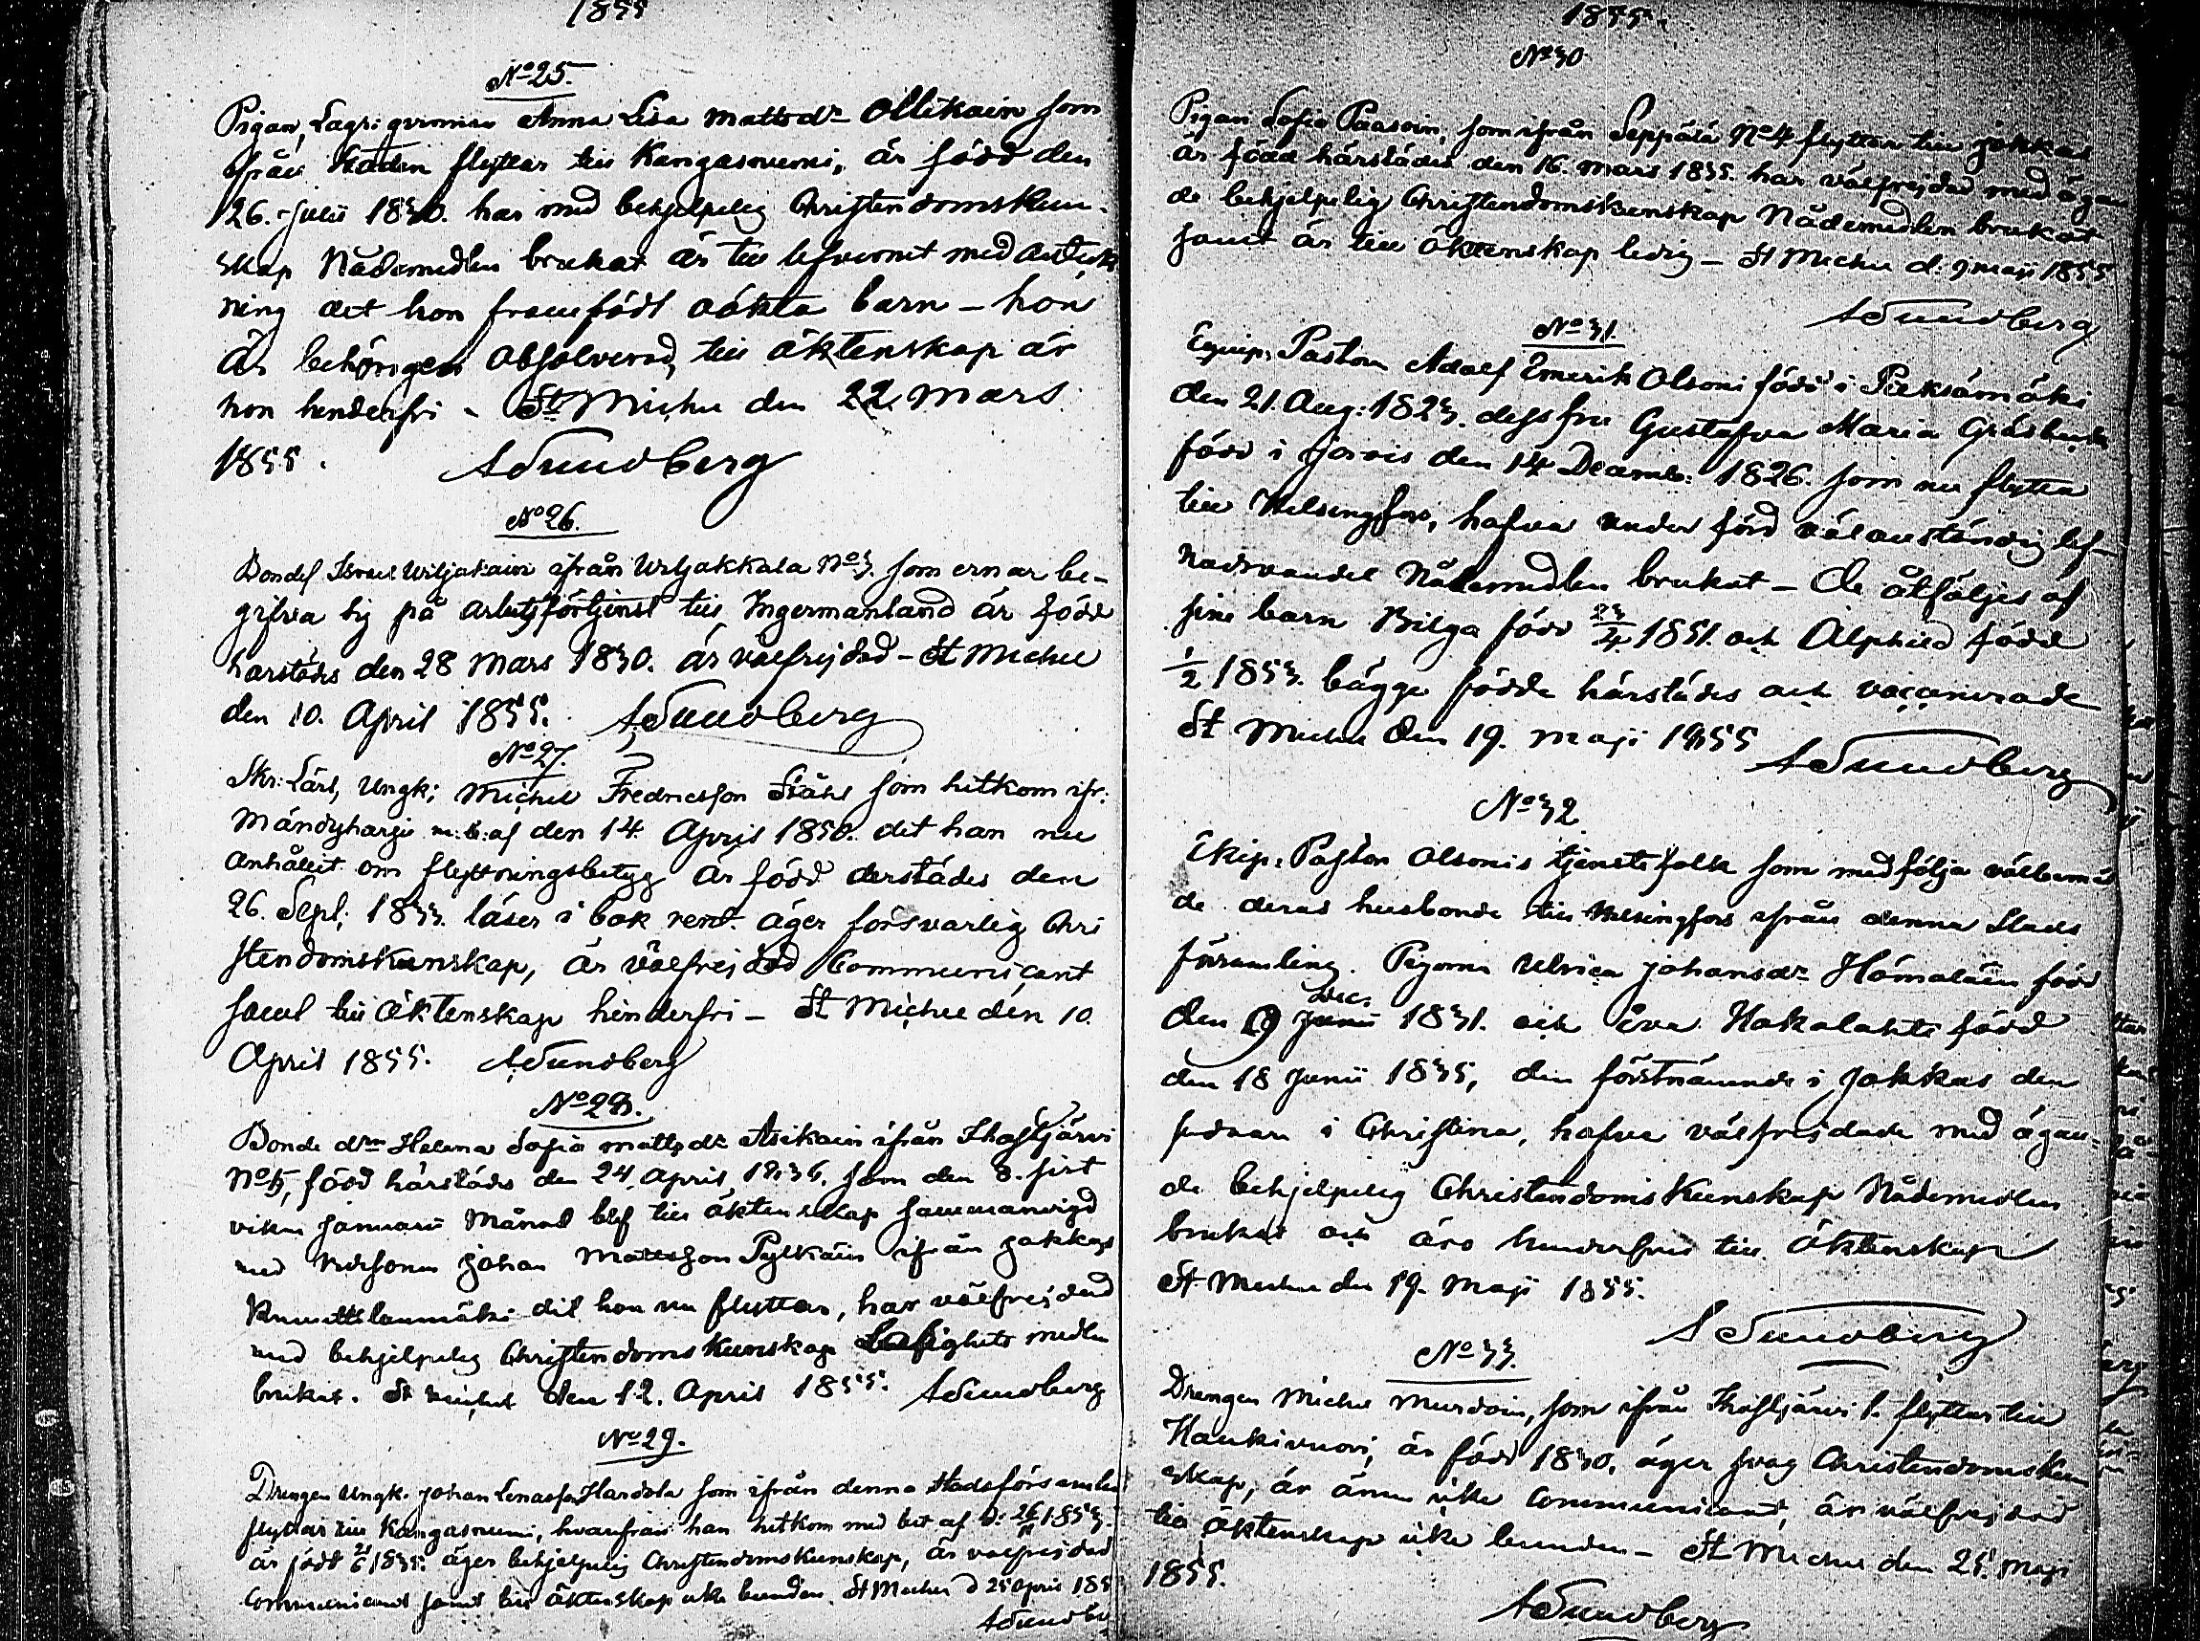 1855
No 25.
Pigan, Lagr: qvinnan Anna Lisa Mattsdr Ollikain som
ifrån Staden flyttar till Kangasniemi, är född den
26. Julii 1830. har med behjelpelig Christendomskun-
skap Nådemedlen brukat är till lefvernet med anteck
ning det hon framfödt oäkta barn – hon
är behörigen absolverad, till äktenskap är
hon hinderfri – St Michel den 22 Mars
1855. ASundberg
No 26.
Bondes. Israel Wiljakain ifrån Wiljakkala No 3. som ernar be-
gifva sig på arbetsförtjenst till Ingermanland är född
härstädes den 28 Mars 1830. är välfrejdad – St Michel
den 10. April 1855. ASundberg
No 27.
Skr: Lärl, Ungk: Michel Fredricsson Ståhl som hitkom ifr:
Mändyharju m: b: af den 14 April 1850. det han nu
anhållit om flyttningsbetyg är född derstädes den
26. Sept: 1833. läser i bok rent. äger försvarlig Chri
stendomskunskap, är välfrejdad Communicant
samt till äktenskap hinderfri – St Michel den 10.
April 1855. ASundberg
No 28.
Bonde dn Helena Sofia Mattsdr Asikain ifrån
No 5, född härstädes den 24. April 1836. som den 8. sist
vikne Januarii Månad blef till äktenskap sammanvigd
med Johan Mattsson Pylkäin ifrån Jokkas
dit hon nu flyttar, har välfrejdad
med behjelpelig Christendoms Kunskap medlen
brukat. St Michel den 12. April 1855. ASundberg
No 29.
Drengen Ungk. Johan som ifrån denna Stadsförsamlin
flyttar till Kangasniemi, hvarifrån han hitkom med bet af d: 26 1853
är född 1835. äger behjelpelig Christendomskunskap, är välfrejdad
Communicant samt till äktenskap icke bunden. St Michel d 25 April 185
ASundbe
1855.
No 30
Pigan Sofia Paasoin, som ifrån Seppälä No 4 flyttar till Jokkas
är född härstädes den 16. Mars 1835. har välfrejdad med ägan
de behjelpelig Christendomskunskap Nådemedlen brukat
samt är till äktenskap ledig – St Michel d: 9 Maji 1855
ASundberg
No 31.
Equip: Pastorn Adolf Emerik Olsoni född i Pieksämäki
den 21. Aug: 1823. dess fru Gustafva Maria
född i Jorois den 14 Decemb: 1826. som nu flytta
till Helsingfors, hafva under förd välanständig lef-
nadsvandel Nådemedlen brukat – De åtföljes af
sine barn Bilga född 23/4 1851. och Alphild född
1/2 1853. bägge födde härstädes och vaccinerade
St Michel den 19. Maji 1855
ASundberg
No 32
Ekip: Pastor Olsonis tjenstefolk som medfölja
de deras husbonde till Helsingfors ifrån denna Stads
församling. Pigorna Ulrica Johansdr Hämäläin född
Dec.
den 9 Junii 1831. och Eva Hakalahti född
den 18 Junii 1835, den förstnämnde i Jokkas den
sednare i Christina, hafva välfrejdade med ägan-
de behjelpelig Christendoms Kunskap Nådemedlen
brukat och äro hinderfria till äktenskap
St Michel den 19. Maji 1855.
ASundberg
No 33.
Drengen Michel Murdoin, som ifrån 1. flyttar till
Haukivuori, är född 1830. äger svag Christendomskun
skap, är ännu icke Communicant, är välfrejdad
till äktenskap icke bunden – St Michel den 25. Maji
1855.
ASundberg